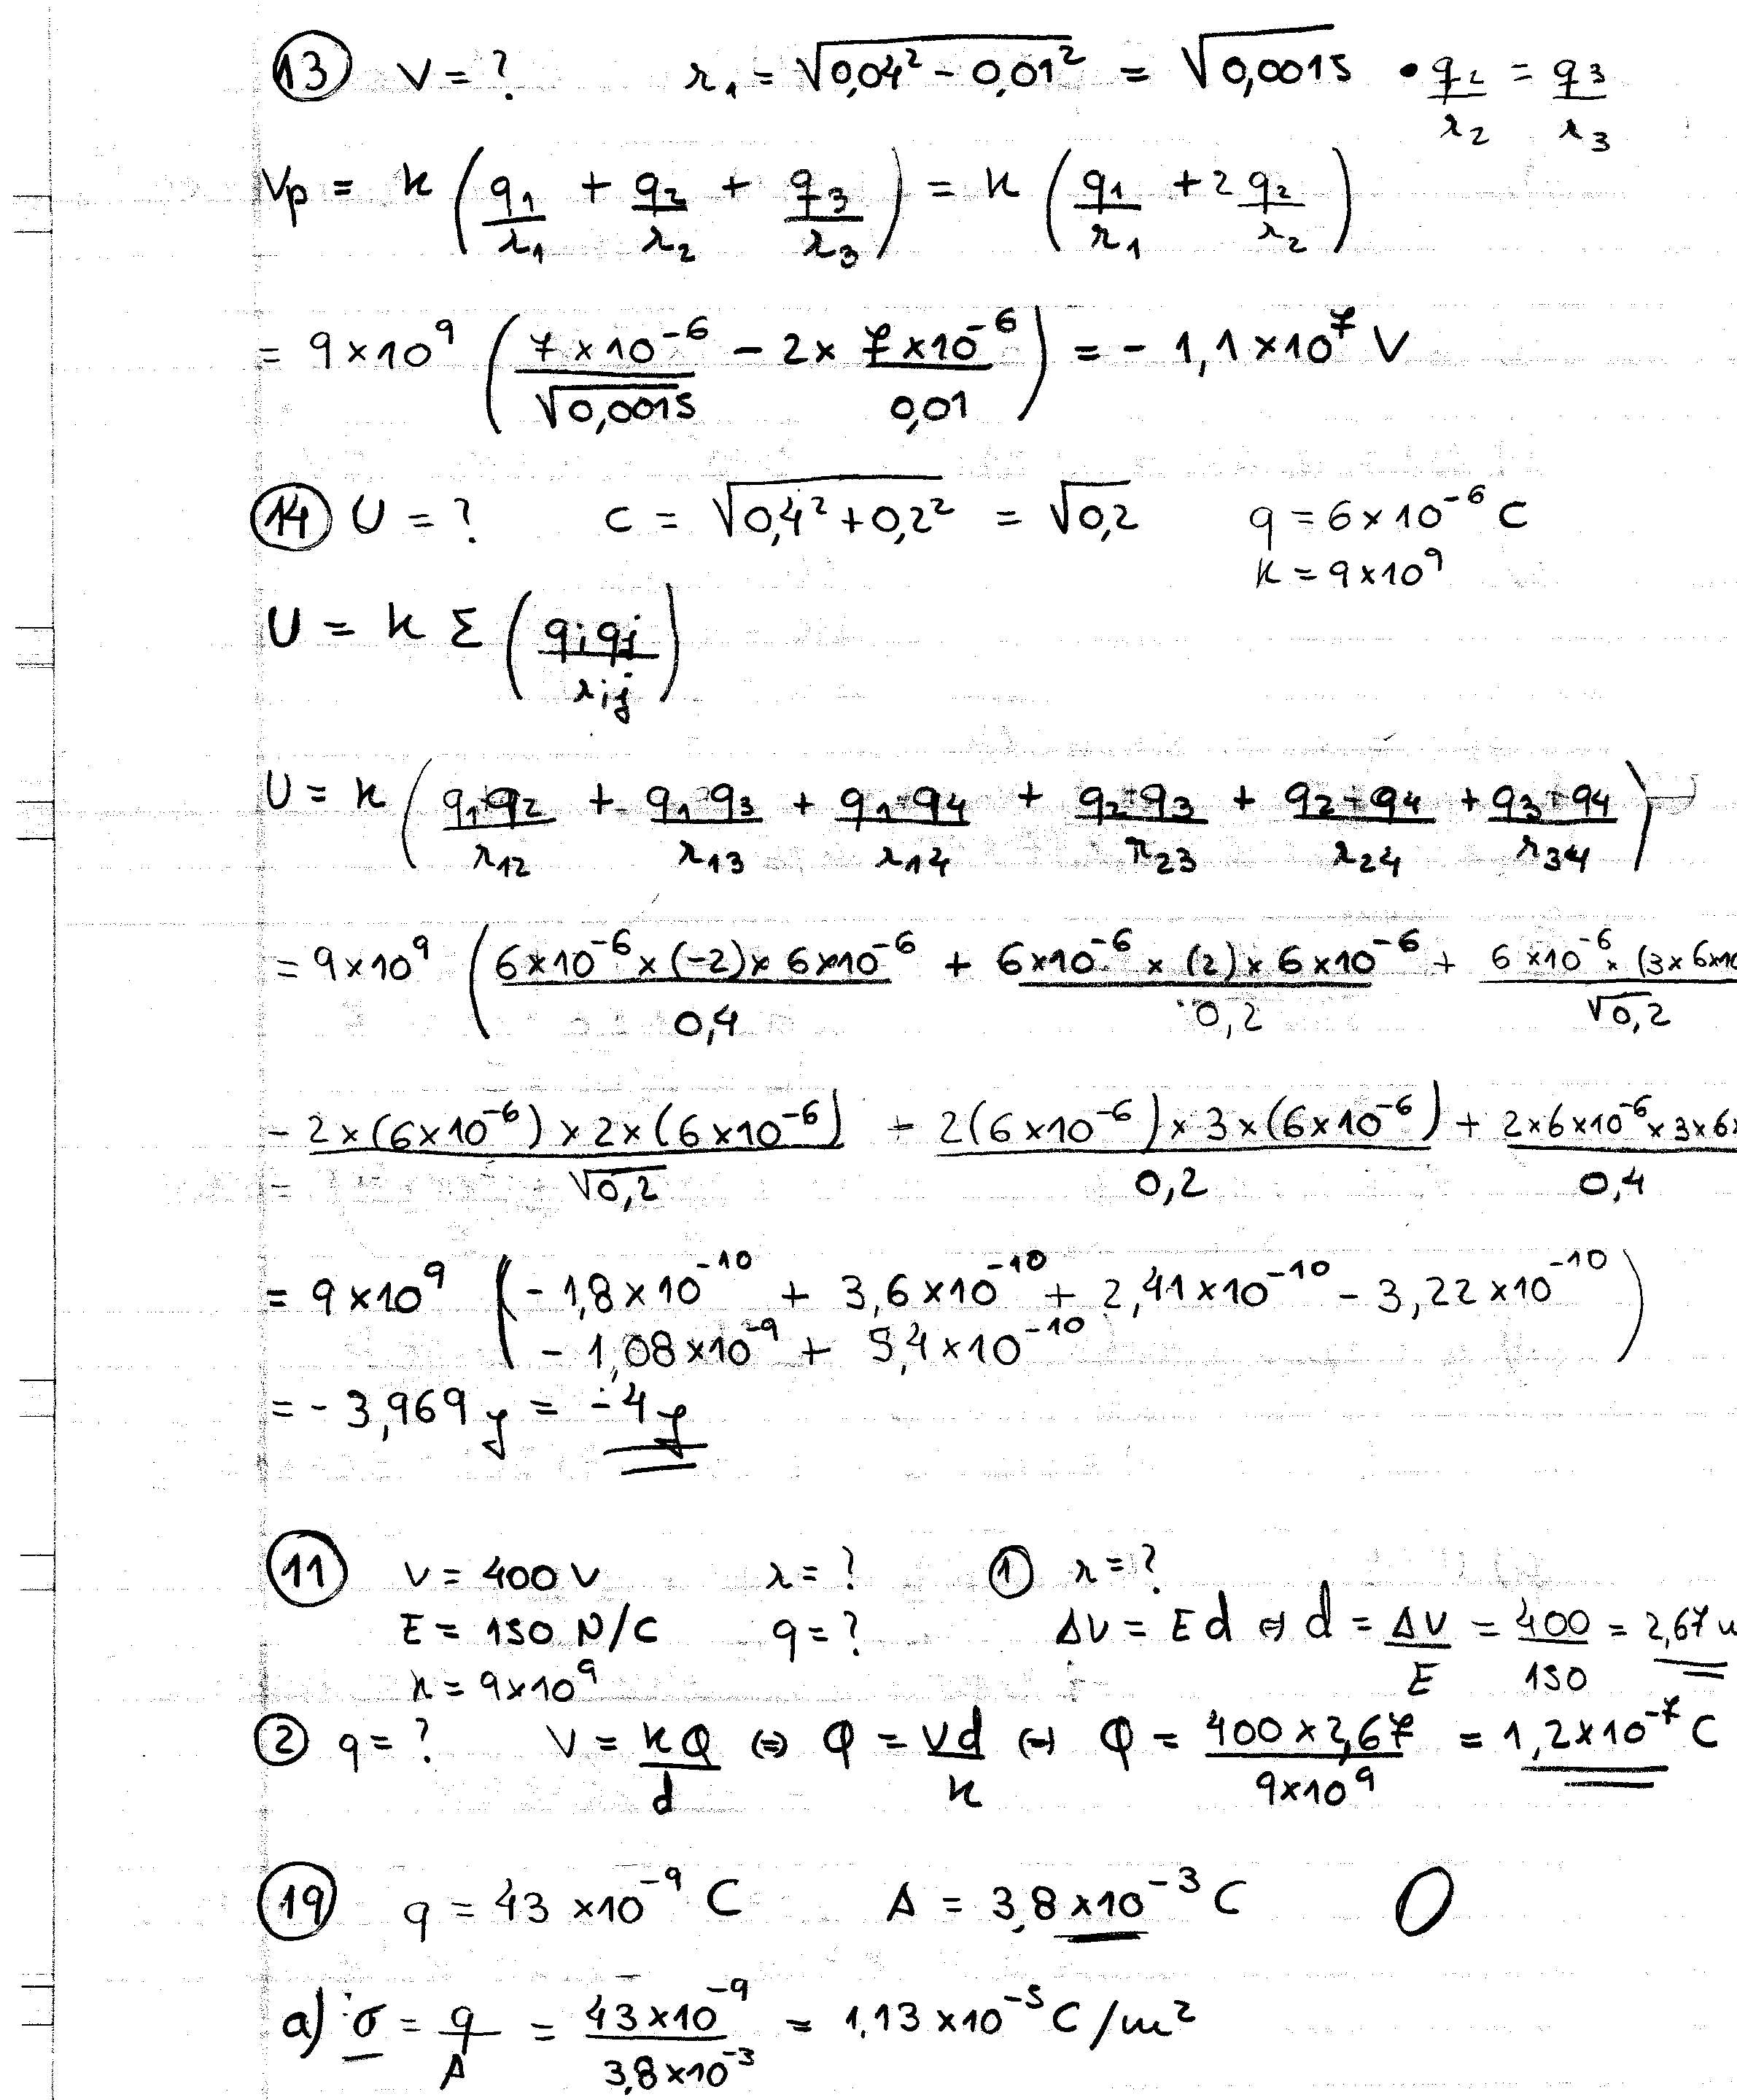 13 V = ? r₁ = √(0,04² - 0,01²) = √0,0015 • q₂/r₂ = q₃/r₃
Vp = k (q₁/r₁ + q₂/r₂ + q₃/r₃) = k (q₁/r₁ + 2 q₂/r₂)
= 9×10⁹ (7×10⁻⁶/√0,0015 - 2× 7×10⁻⁶/0,01) = - 1,1×10⁷ V
14 U = ? c = √(0,4² + 0,2²) = √0,2 q = 6×10⁻⁶ C
k = 9×10⁹
U = k Σ (qᵢqⱼ/rᵢⱼ)
U = k (q₁q₂/r₁₂ + q₁q₃/r₁₃ + q₁q₄/r₁₄ + q₂q₃/r₂₃ + q₂q₄/r₂₄ + q₃q₄/r₃₄)
= 9×10⁹ (6×10⁻⁶×(-2)×6×10⁻⁶/0,4 + 6×10⁻⁶×(2)×6×10⁻⁶/0,2 + 6×10⁻⁶×(3×6×10/√0,2
- 2×(6×10⁻⁶)×2×(6×10⁻⁶)/√0,2 - 2(6×10⁻⁶)×3×(6×10⁻⁶)/0,2 + 2×6×10⁻⁶×3×6×/0,4
= 9×10⁹ (- 1,8×10⁻¹⁰ + 3,6×10⁻¹⁰ + 2,41×10⁻¹⁰ - 3,22×10⁻¹⁰
- 1,08×10⁻⁹ + 5,4×10⁻¹⁰)
= - 3,969 J = -4 J
11 V = 400 V r = ? 1 r = ?
E = 150 N/C q = ? ΔV = E d ⇔ d = ΔV/E = 400/150 = 2,67
k = 9×10⁹
2 q = ? V = kQ/d ⇔ Q = Vd/k ⇔ Q = 400×2,67/9×10⁹ = 1,2×10⁻⁷ C
19 q = 43×10⁻⁹ C A = 3,8×10⁻³ C O
a) σ = q/A = 43×10⁻⁹/3,8×10⁻³ = 1,13×10⁻⁵ C/m²